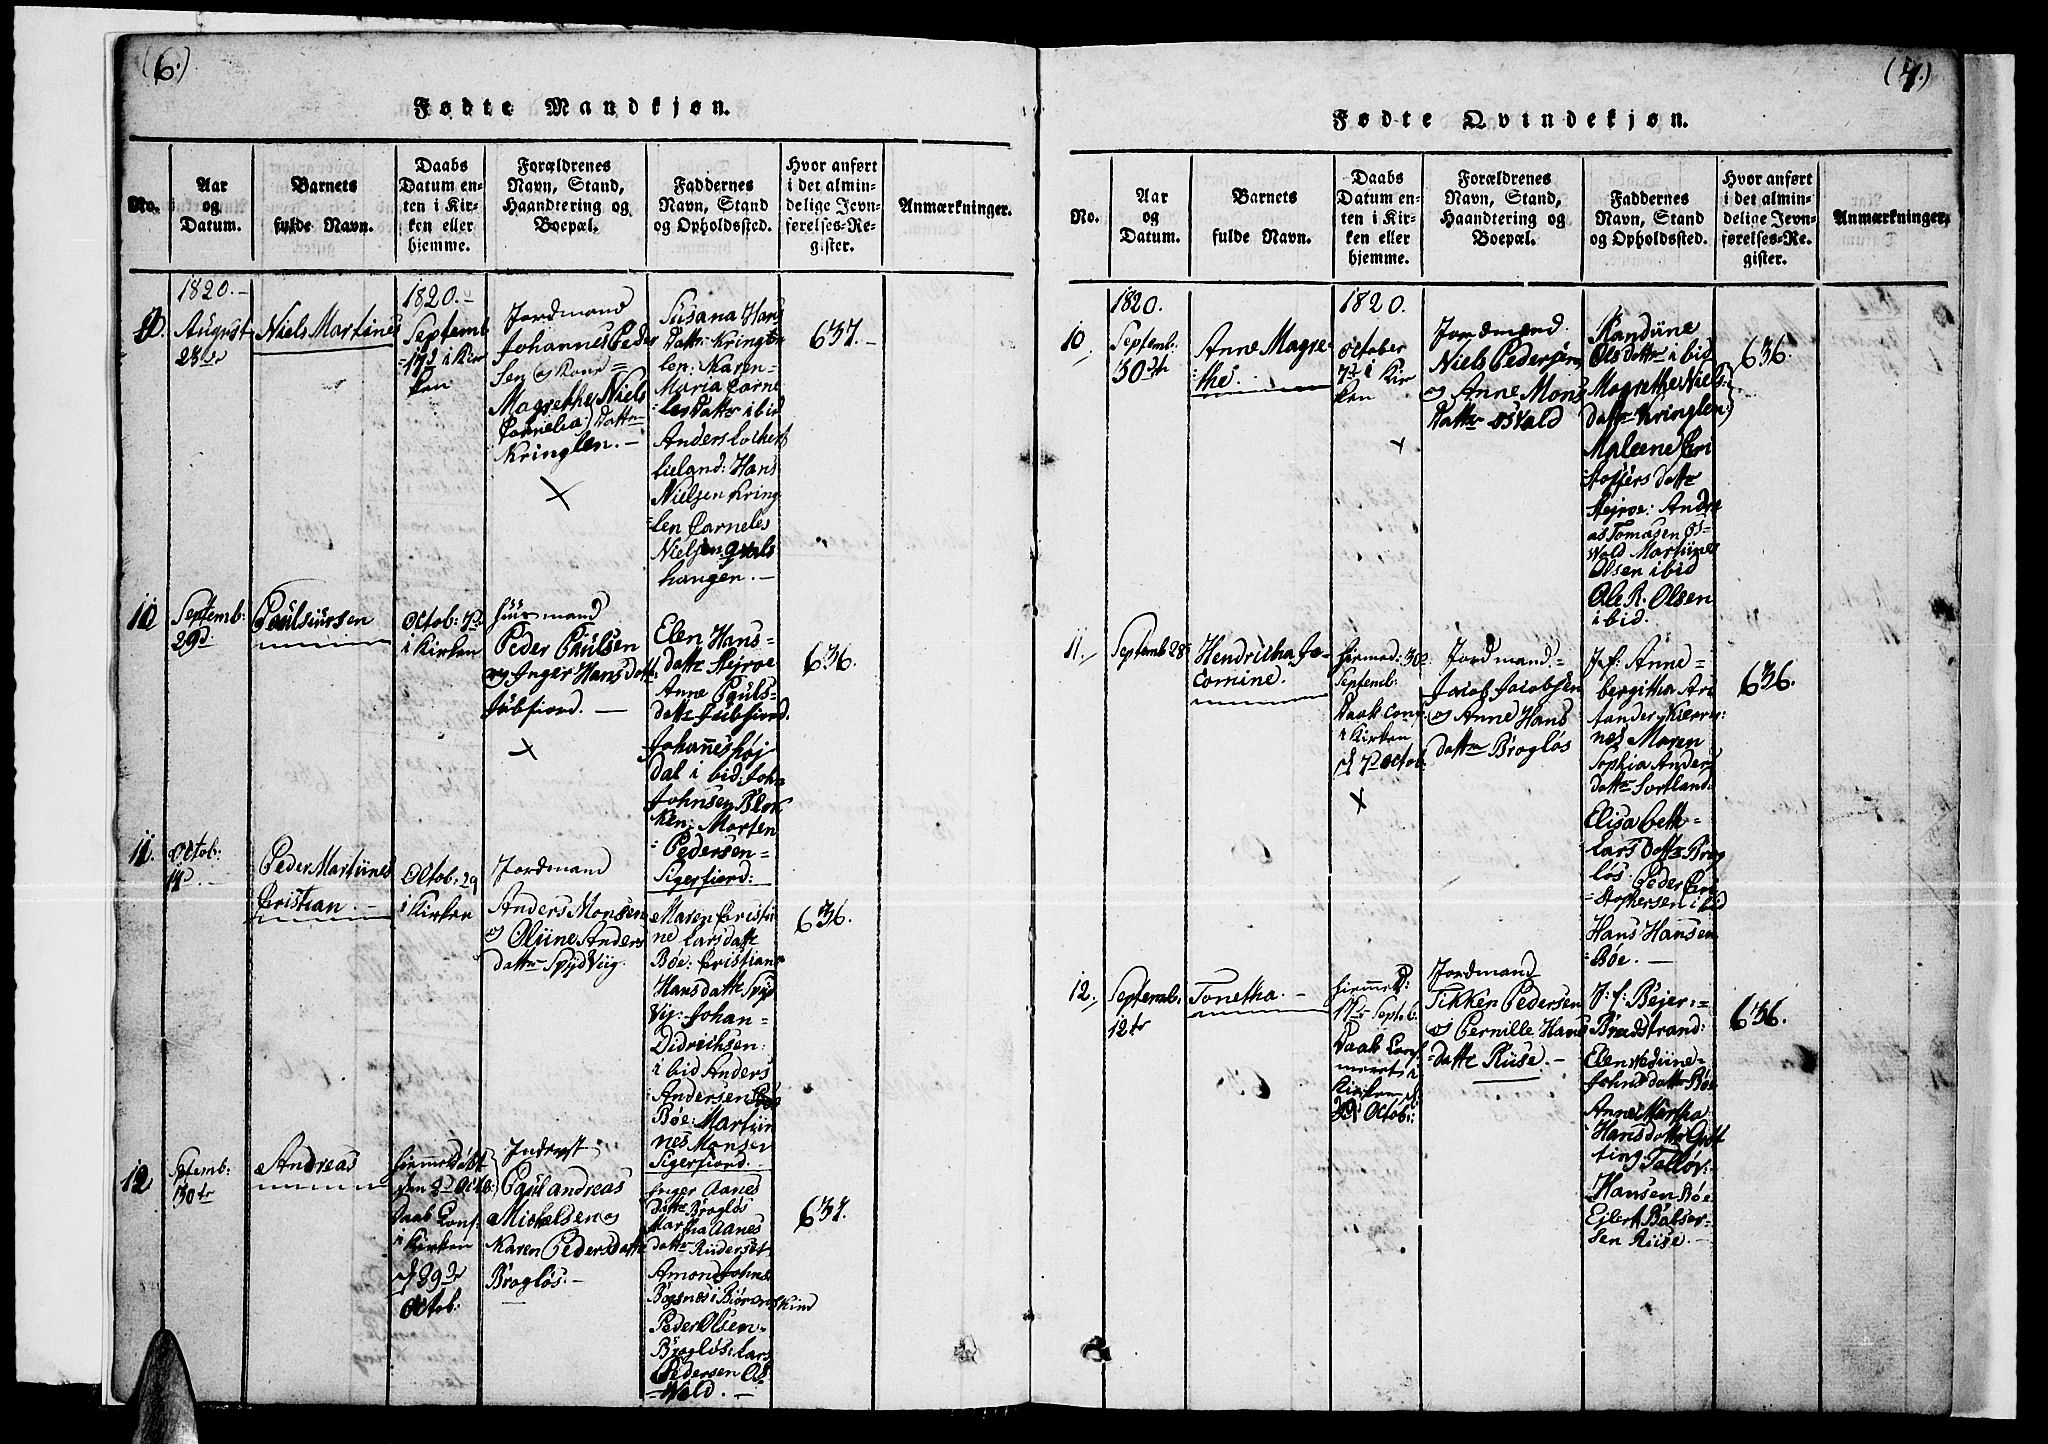 (6.)
Fødte Mandkjøn.
No.
Aar
og
Datum.
Barnets
fulde Navn.
Daabs
Datum en-
ten i Kir-
ken eller
hjemme.
Forældrenes
Navn, Stand,
Haandtering og
Boepæl.
Faddernes
Navn, Stand
og Opholdssted.
Hvor anført
i det almin-
delige Jevn-
førelses-Re-
gister.
Anmærkninger.
9.
1820.-
August
23de
Niels Martines
1820.-
Septemb
17d i Kir
ken
Jordmand
Johannes Peder
sen og Kone =
Magrethe Niels
Cornelia) Datter
Kringlen. -
Susana Hans
Datter Kring
len: Maren=
Maria Corne
les Datter ibid
Anders Lockert
Lieland: Hans
Nielsen Kring
len Corneles
Nielsen Qvals
hangen. -
637.-
10
Septemb:
29d
Octob: 7d
i Kirken
Huusmand
Peder Paulsen
og Inger Hansdatt
Jübfiord. -
Elen Hans=
datte Stejroe
Anne Pauls=
datte Jübfiord.
Johannes Høj
dal i bid: John
Johnsen Blok
ken: Morten
Pedersen=
Sigerfiord:
636.
11.
Octob:
Peder Martiines
Cristian. -
Octob: 29
i Kirken
Jordmand
Anders Monsen
og Oliine Anders
datter SpydViig.
Maren Cristii
ne Larsdatte
Bøe: Cristiane
Hansdatte Spyd
Vig: Johan=
Didrichsen:
i bid Anders
Andersen
Bøe: Martiin
nes Monsen
Sigerfiord.
636.
12
Septemb:
30te
Andreas
hiemmedøbt
den 3d Octb:
Daab Conf:
i Kirken
d 29de
Octob:
Inderst
Paul andreas
Michelsen og
Karen Pedersdatte
Brogløs. -
Inger Aanes
Datte Brogløs
Martha Aanes
datter Rinderset
Amond Johns.
Bogsnes i Biørenskind
Peder Olsen=
Brogløs: Lars
Pedersen Os=
Wold. -
637.
(7.)
Fødte Qvindekjøn.
No.
Aar
og
Datum.
Barnets
fulde Navn.
Daabs
Datum en-
ten i Kir-
ken eller
hjemme.
Forældrenes
Navn, Stand,
Haandtering og
Boepæl.
Faddernes
Navn, Stand
og Opholdssted.
Hvor anført
i det almin-
delige Jevn-
førelses-Re-
gister.
Anmærkninger.
10
1820.
Septemb.
30te
Anne Magre=
the.
1820.
October
7d i Kir
ken
Jordmand.
Niels Pedersen
og Anne Mons
Datter Osvold
Randiine
Olsdatter i bid
Magrethe Niels:
datte Kringlen
Maleene Cri
stoffers datte
Stejroe: Andre
as Tomasen Os=
Wold Martiines
Olsen ibid
Ole R. Olsen
i bid.
636.
11.
Septemb 28
Hendricha Ja=
comine.
hiemed: 30d
Septemb:
Daab Conf:
i Kirken
d 7d Octob:
Jordmand.=
Jacob Jacobsen
og Anne Hans
datter Brogløs
J:f: Anne=
bergitha Ari
tander Kierr
nes Maren
Sophia Anders
datter Sortland:
Elisabeth=
Lars Datte Brog
løs. Peder Cri
stophersen i bid
Hans Hansen
Bøe. -
636.
12.
Septemb:
12te
Tonetha. -
hiemmed:
17de Septeb.
Daab Conf:
meert i
Kirken d
29d Octob:
Jordmand
Tikken Pedersen
og Pernille Hans
datte Riise. -
J: f: Bejer:=
Bredstrand:
Elen
Johnsdatter Bøe
Anne Martha
Hansdatter
ting
Hansen Bøe
Ejlert Baltser=
sen Riise. -
636.